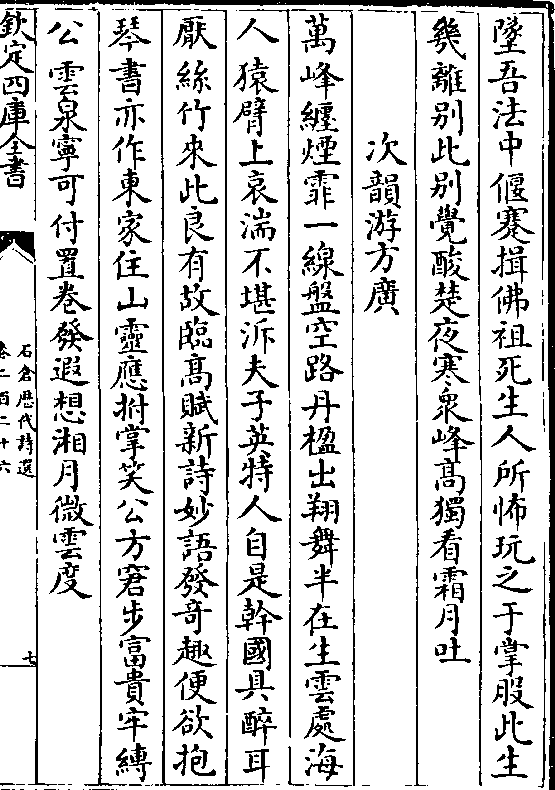 墜吾法中偃蹇揖佛祖死生人所怖玩之于掌股此生
幾離别此别覺酸楚夜寒衆峰髙獨看霜月吐
次韻游方廣
萬峰纒煙霏一線盤空路丹楹出翔舞半在生雲處海
人猿臂上哀湍不堪泝夫子英特人自是幹國具醉耳
厭絲竹來此良有故臨髙賦新詩妙語發竒趣便欲抱
琴書亦作東家住山靈應拊掌笑公方窘步富貴牢縛
公雲泉寧可付置卷發遐想湘月微雲度
欽定四庫全書
石倉歷代詩選
卷二百二十六
七